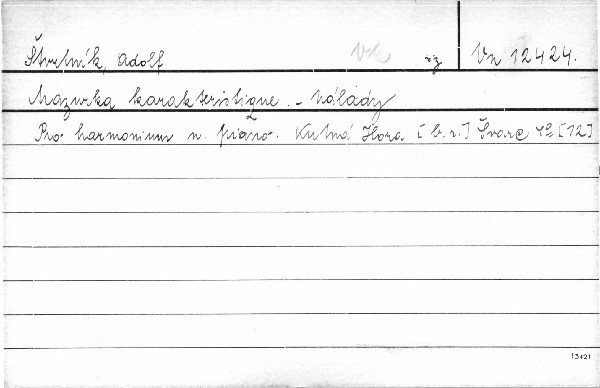 Štrelník, Adolf Vz 12424.
Mazurka karakteristique. - Nálady
Pro harmonium n. piano. Kutná Hora [b.r.] Švarc 4° [12]
13421